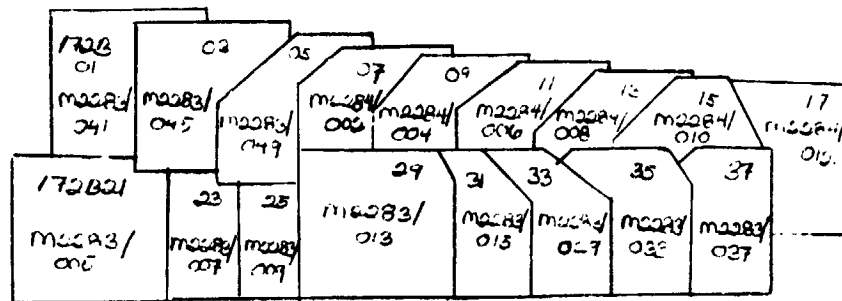 172B
01
M2283/
041
03
M2283/
045
05
M2283/
049
07
M2284/
002
09
M2284/
004
11
M2284/
006
13
M2284/
008
15
M2284/
010
17
M2284/
012
172B21
M2283/
23
M2283/
007
25
M2283/
009
29
M2283/
013
31
M2283/
015
33
M2283/
35
M2283/
37
M2283/
037